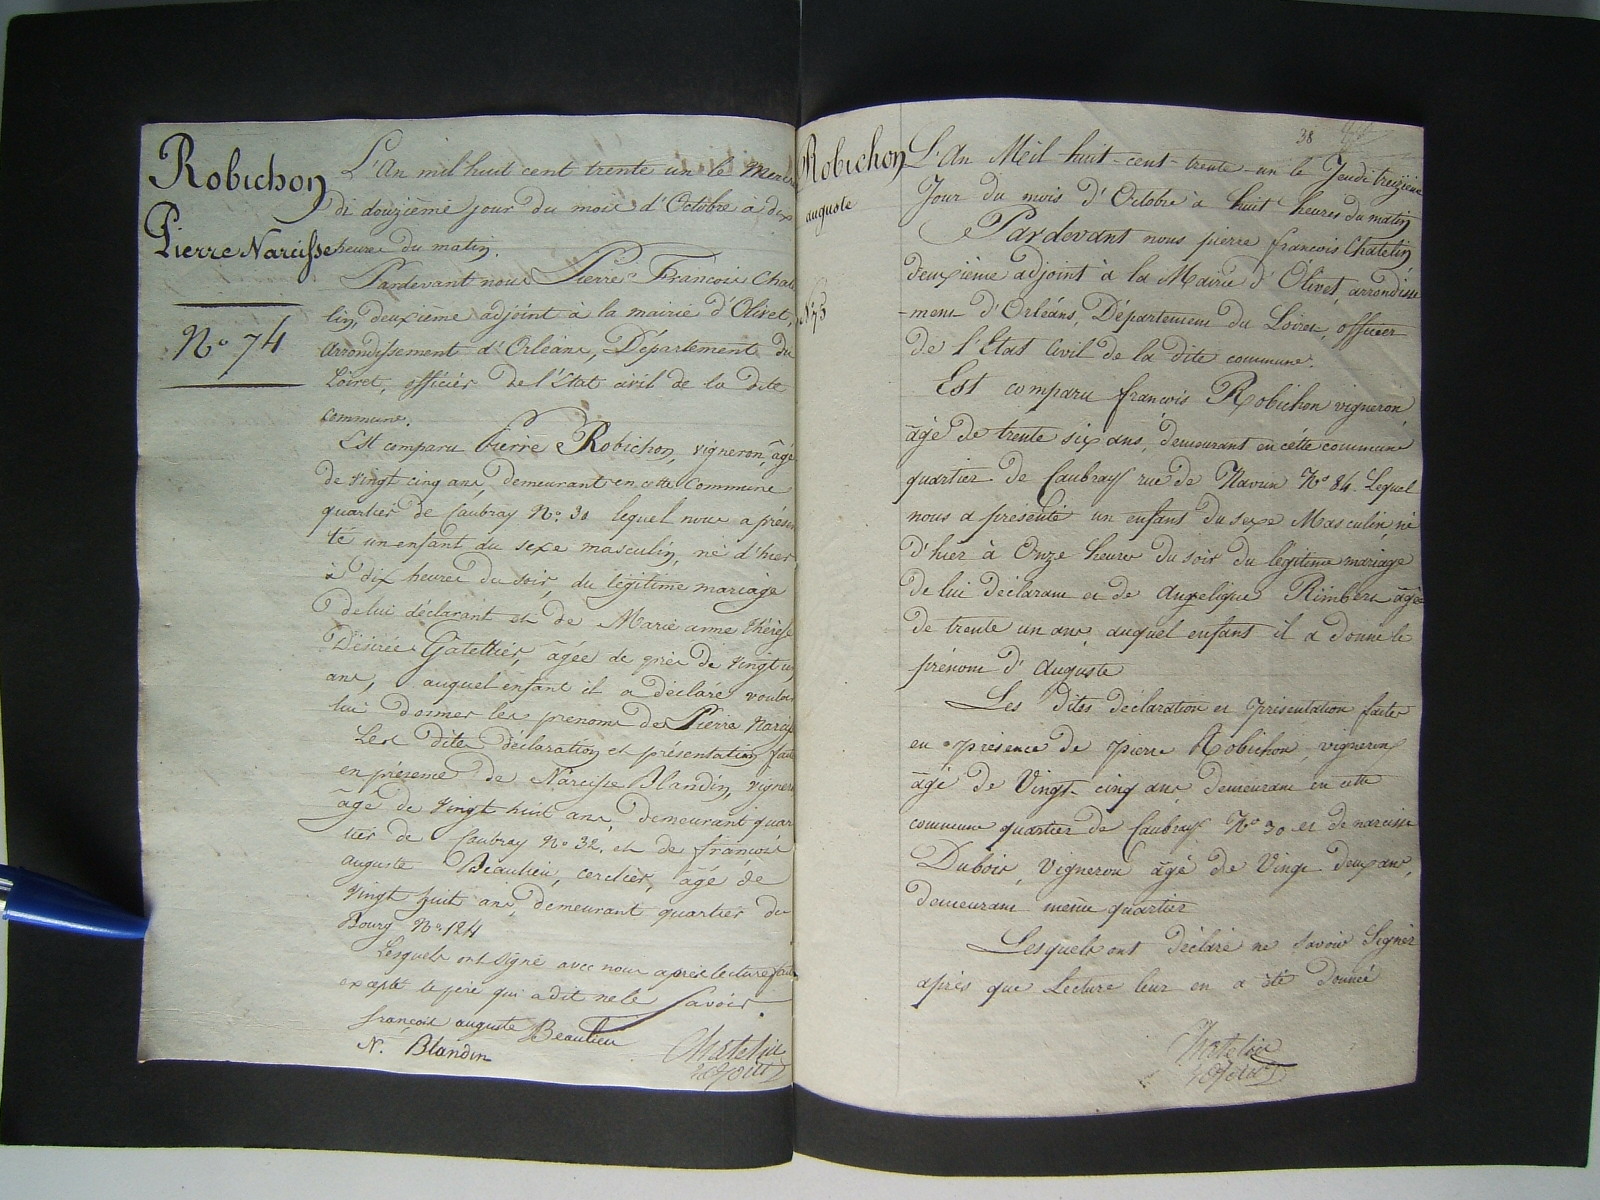 Robichon
Pierre Narcisse
N° 74
L'An mil huit cent trente un le Mercre
di douzième jour du mois d'Octobre a dix
heures du matin.
Pardevant nous Pierre François Chate
lin, deuxième adjoint à la mairie d'Olivet,
arrondissement d'Orléans, Département du
Loiret, officier de l'état civil de la dite
commune.
Est comparu Pierre Robichon, vigneron, âgé
de vingt cinq ans, demeurant en cette Commune
quartier de Caubray N° 30 lequel nous a présen
té un enfant du sexe masculin, né d'hier
à dix heures du soir, du légitime mariage
de lui déclarant et de Marie anne thérèse
Désirée Gatellier, âgée de près de vingt un
ans, auquel enfant il a déclaré vouloir
lui donner les prenoms de Pierre Narcisse
Les dites déclaration et présentation faites
en présence de Narcisse Blandin, vigneron
âgé de vingt huit ans, demeurant quar
tier de Caubray N° 32, et de françois
auguste Beaulieu, cerclier, âgé de
vingt huit ans, demeurant quartier du
Bourg N° 124
Lesquels ont signé avec nous après lecture faite
excepté le père qui a dit ne le savoir.
françois auguste Beaulieu
N. Blandin
Chatelin
adjoint
38
Robichon
auguste
N° 75
L'An Mil huit-cent-trente-un le Jeudi treizième
Jour du mois d'Octobre à huit heures du matin
Pardevant nous pierre françois Chatelin
deuxième adjoint à la Mairie d'Olivet, arrondisse
-ment d'Orléans, Département du Loiret, officier
de l'Etat Civil de la dite commune.
Est comparu françois Robichon vigneron,
âgé de trente six ans, demeurant en cette commune
quartier de Caubray rue de N° 84 Lequel
nous a présenté un enfant du sexe Masculin, né
d'hier à Onze heures du soir du légitime mariage
de lui déclarant et de Angelique Rimbert âgée
de trente un ans, auquel enfant il a donné le
prénom d'Auguste
Les dites déclaration et présentation faites
en présence de pierre Robichon, vigneron
âgé de Vingt-cinq ans, demeurant en cette
commune quartier de Caubray N° 30 et de narcisse
Dubois, Vigneron âgé de Vingt-deux ans,
demeurant même quartier
Lesquels ont déclaré ne savoir Signer
après que Lecture leur en a été donnée
Chatelin
adjoint